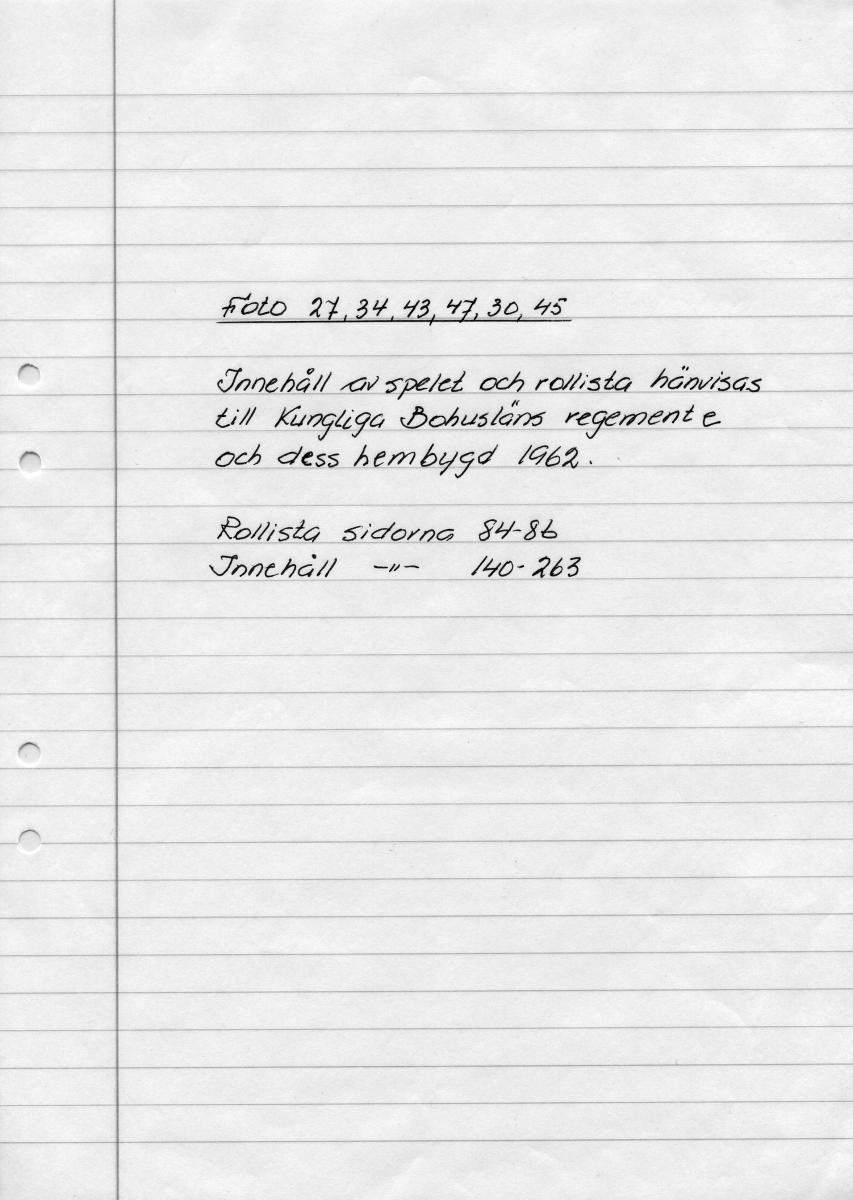 Foto 27, 34, 43, 47, 30, 45
Innehåll av spelet och rollista hänvisas
till Kungliga Bohusläns regemente
och dess hembygd 1962.
Rollista sidorna 84-86
Innehåll -"- 140-263